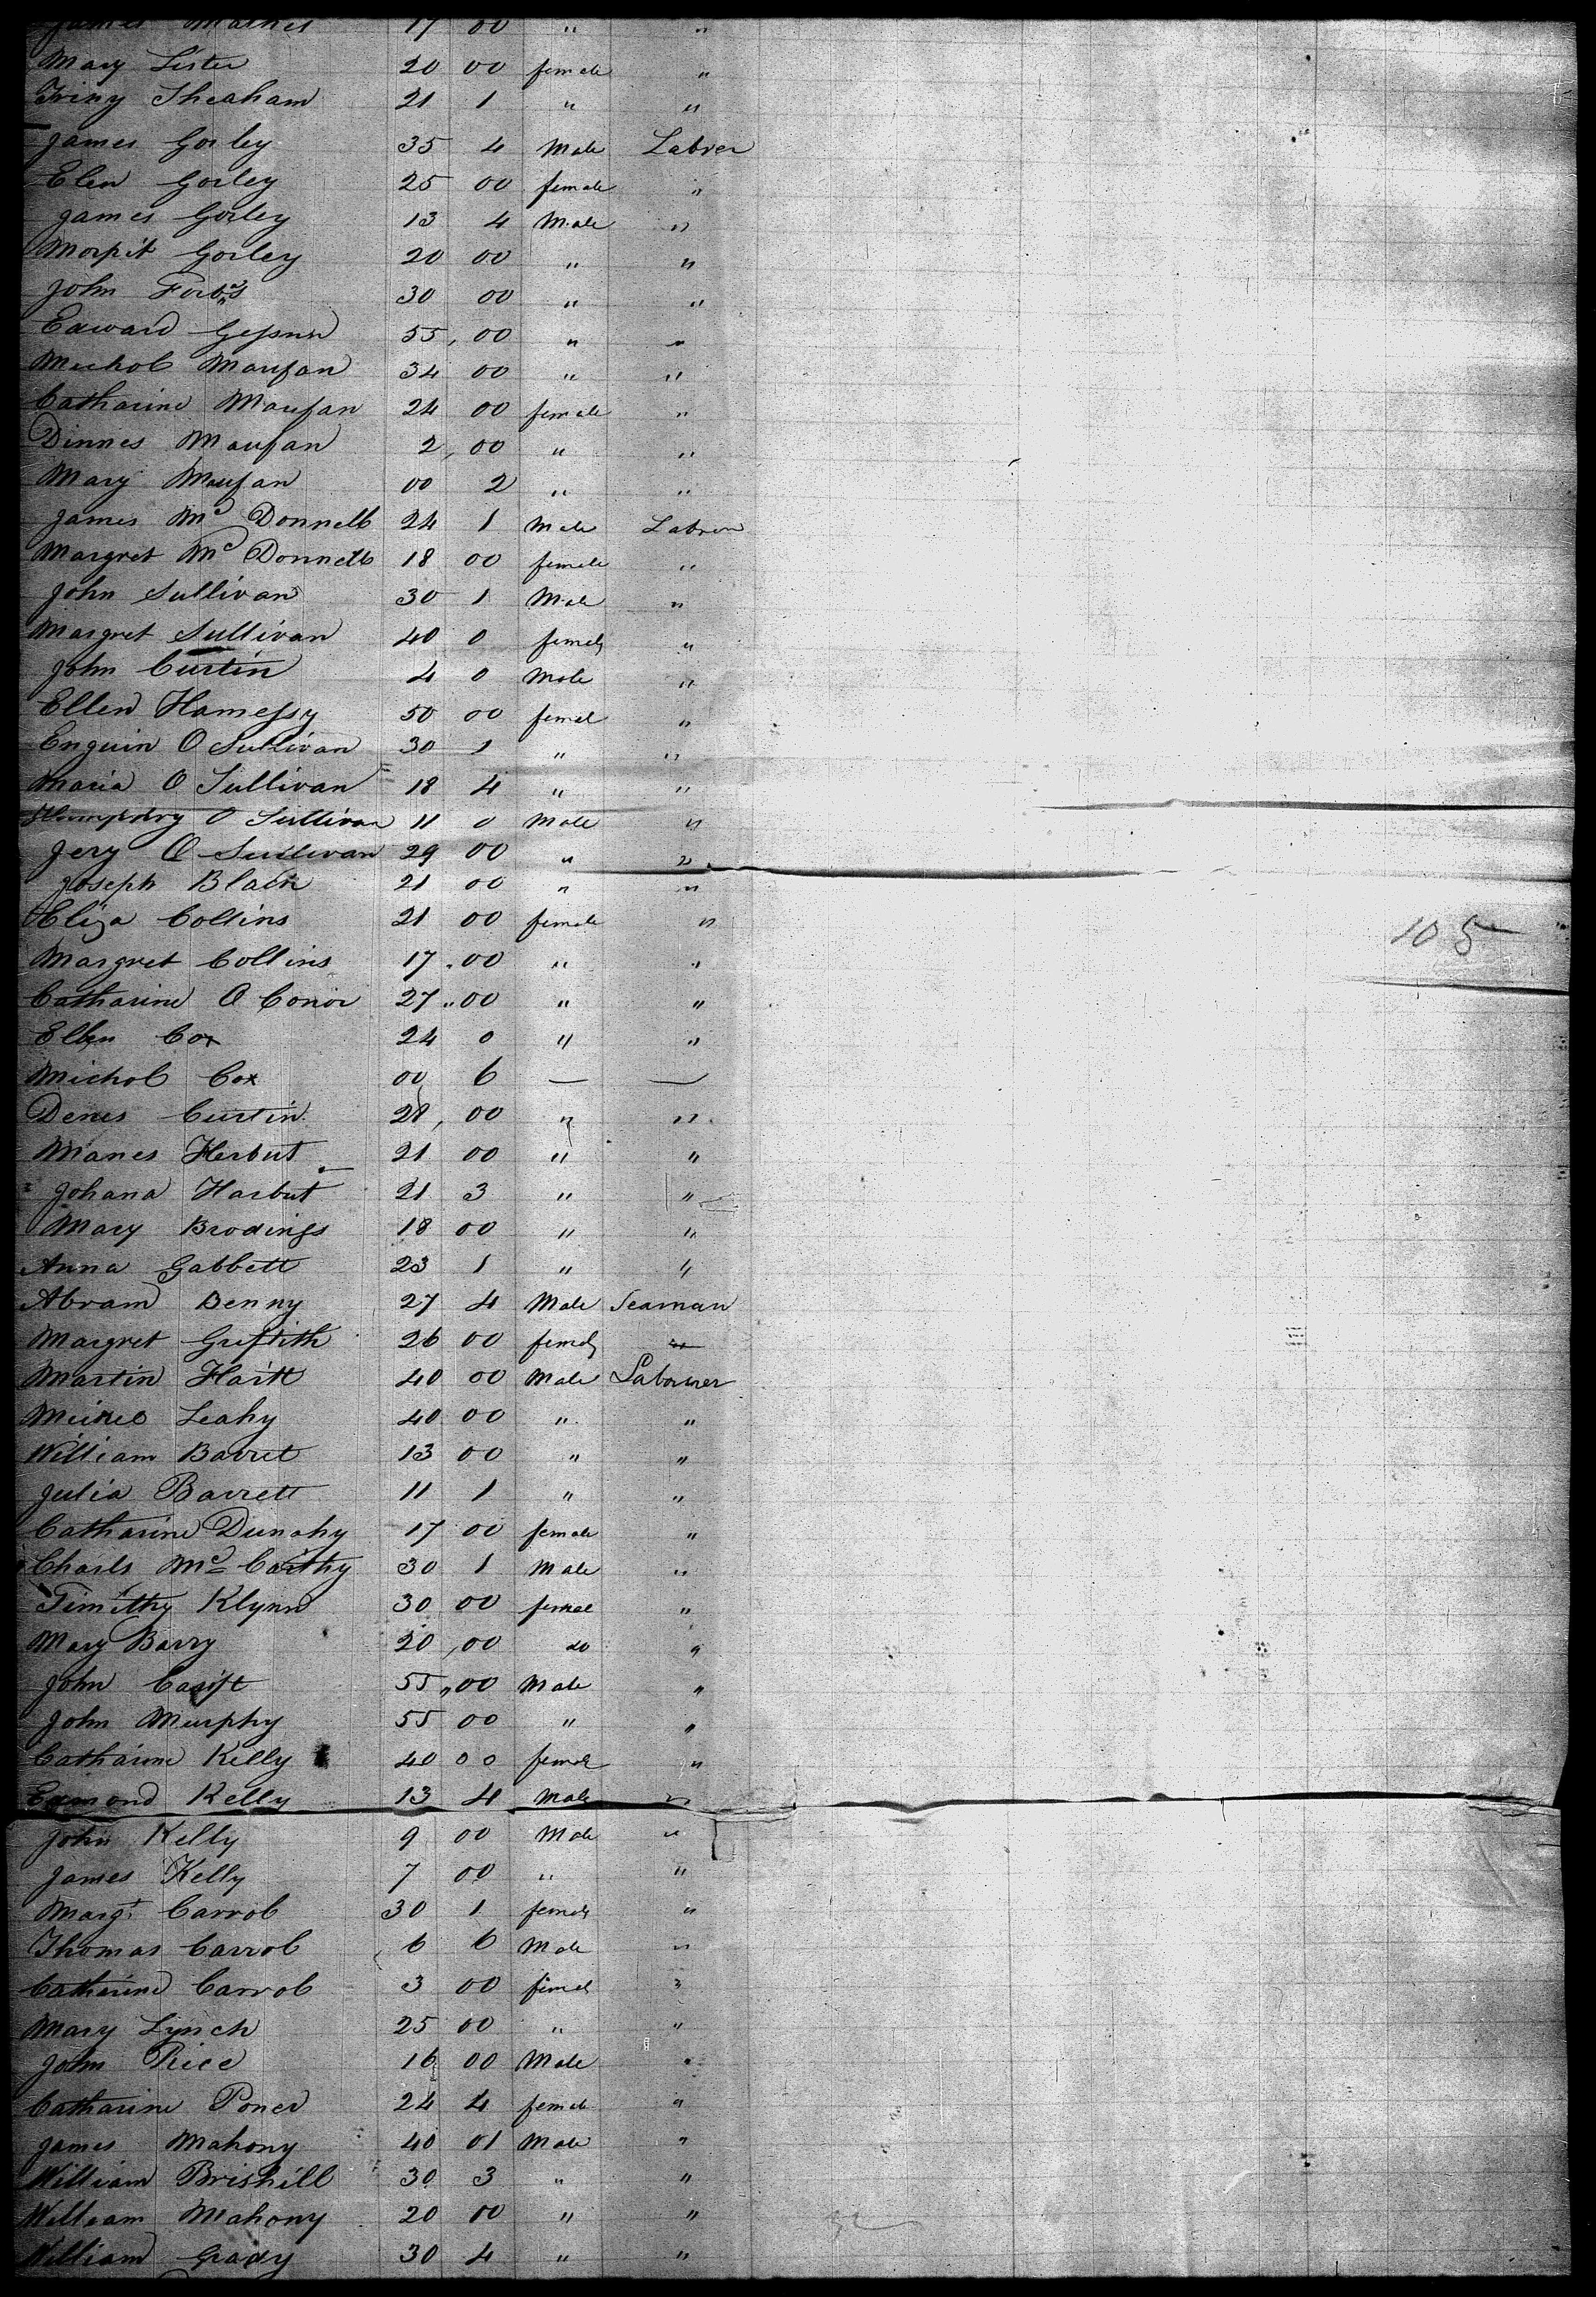 James 17 00 " "
Mary Lister 20 00 female "
Triny Sheaham 21 1 " "
James Gorley 35 4 Male Labrer
Elen Gorley 25 00 female "
James Gorley 13 4 Male "
Morpit Gorley 20 00 " "
John Forbs 30 00 " "
Edward 55, 00 " "
Michol Maupan 34 00 " "
Catharine Maupan 24 00 female "
Dinnes Maupan 2, 00 " "
Mary Maupan 00 2 " "
James Mc Donnell 24 1 Male Labrer
Margret Mc Donnell 18 00 female "
John Sullivan 30 1 Male "
Margret Sullivan 40 0 female "
John Curtin 4 0 Male "
Ellen Hamessy 50 00 femal "
Enguin O Sullivan 30 1 " "
Maria O Sullivan 18 4 " "
Humphdry O Sullivan 11 0 Male "
Jery O Sullivan 29 00 " "
Joseph Blain 21 00 " "
Eliza Collins 21 00 female "
105
Margret Collins 17 00 " "
Catharine O Conor 27 00 " "
Ellen Cox 24 0 " "
Michol Cox 00 6 — —
Denes Curtin 28, 00 " "
Manes Herbut 21 00 " "
Johana Harbut 21 3 " "
Mary Brodings 18 00 " "
Anna Gabbett 23 1 " "
Abram Benny 27 4 Male Seaman
Margret Griffith 26 00 female "
Martin Hartt 40 00 Male Labourer
Leahy 40 00 " "
William Barret 13 00 " "
Julia Barrett 11 1 " "
Catharine Dunahy 17 00 female "
Charls Mc Carthy 30 1 Male "
Timithy Klynn 30 00 femal "
Mary Barry 20, 00 do "
John 55 " 00 Male "
John Murphy 55 00 " "
Catharine Kelly 40 00 female "
Edmond Kelly 13 4 Male "
John Kelly 9 00 Male "
James Kelly 7 00 " "
Margt Carrol 30 1 female "
Thomas Carrol 6 6 Male "
Catharine Carrol 3 00 femal "
Mary Lynch 25 00 " "
John Rice 16 00 Male "
Catharine Poner 24 4 female "
James Mahony 40 01 Male "
William Brishill 30 3 " "
William Mahony 20 00 " "
William Grady 30 4 " "